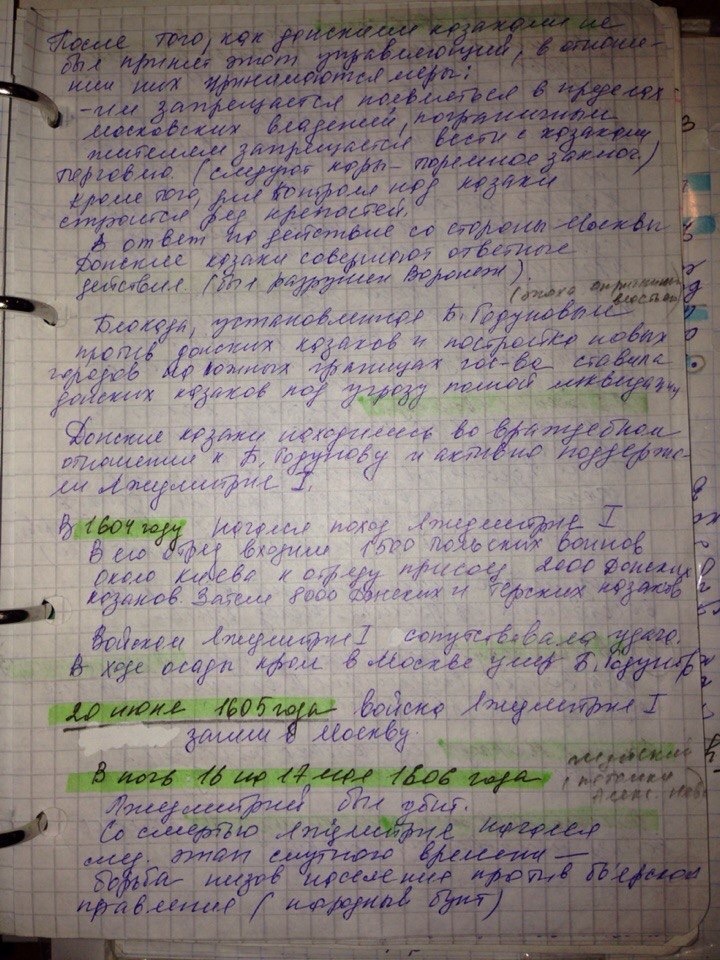 После того, как донскими казаками не
был принят этот управляющий, в отноше-
нии них принимаются меры:
- им запрещается появляться в пределах
московских владений, пограничным
жителям запрещается вести с козаками
торговлю. (следуют кары - тюремное заключ)
Кроме того, для контроля над козаки
строится ряд крепостей.
В ответ на действие со стороны Москвы
Донские козаки совершают ответные
действия. (был разрушен Воронеж).
Блокада, установленная Б. Годуновым
против донских козаков и постройка новых
городов на южных границах гос-ва ставила
донских козаков под угрозу полной ликвидации
Донские козаки находились во враждебном
отношении к Б. Годунову и активно поддержа-
ли Лжедмитрия I.
В 1604 году начался поход Лжедмитрия I
В его отряд входили 1500 польских воинов
около Киева к отряду присоед. 2000 Донских
козаков. Затем 8000 Донских и Терских козаков
Войскам Лжедмитрия I сопутствовала удача.
В ходе осады Кром в Москве умер Б. Годунов
20 июня 1605 года войска Лжедмитрия I
зашли в Москву.
В ночь 16 на 17 мая 1606 года
Лжедмитрий был убит.
Со смертью Лжедмитрия начался
след. этап смутного времени -
борьба низов населения против боярского
правления (народный бунт)